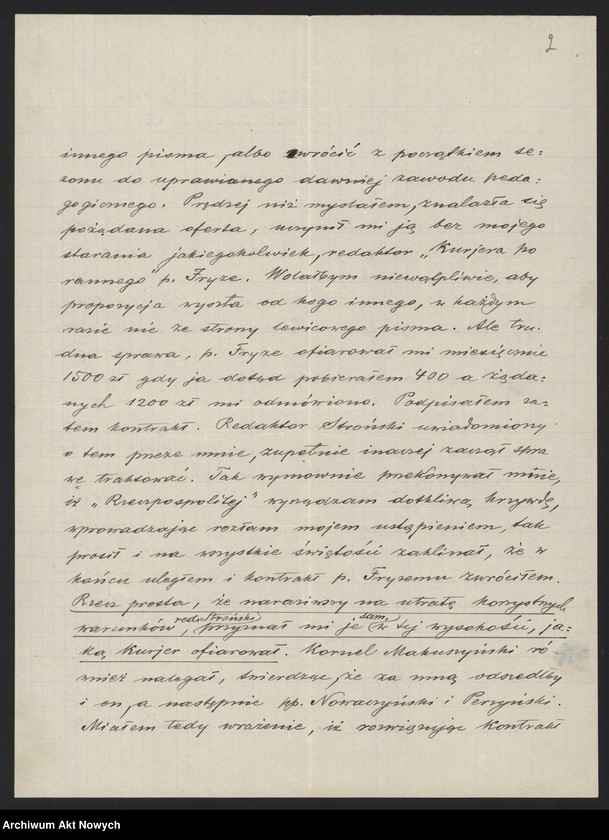 2
innego pisma, albo wrócić z początkiem se=
zonu do uprawianego dawniej zawodu peda=
gogicznego. Prędzej niż myślałem, znalazła się
pożądana oferta, uczynił mi ją bez mojego
starania jakiegokolwiek, redaktor „Kurjera Po
rannego" p. Fryze. Wolałbym niewątpliwie, aby
propozycja wyszła od kogo innego, w każdym
razie nie ze strony lewicowego pisma. Ale tru=
dna sprawa, p. Fryze ofiarował mi miesięcznie
1500 zł gdy ja dotąd pobierałem 400 a żąda=
nych 1200 zł mi odmówiono. Podpisałem za=
tem kontrakt. Redaktor Stroński uwiadomiony
o tem przeze mnie, zupełnie inaczej zaczął spra
wę traktować. Tak wymownie przekonywał mnie,
iż „Rzeczpospolitej" wyrządzam dotkliwą krzywdę,
wprowadzając rozłam mojem ustąpieniem, tak
prosił i na wszystkie świętości zaklinał, że w
końcu uległem i kontrakt p. Fryzemu zwróciłem.
Rzecz prosta, że naraziwszy na utratę korzystnych
warunków, red. Stroński przyznał mi je sam w tej wysokości, ja=
ką Kurjer ofiarował. Kornel Makuszyński ró
wnież nalegał, twierdząc, że za mną odszedłby
i on, a następnie pp. Nowaczyński i Perzyński.
Miałem tedy wrażenie, iż rozwiązując kontrakt
Archiwum Akt Nowych